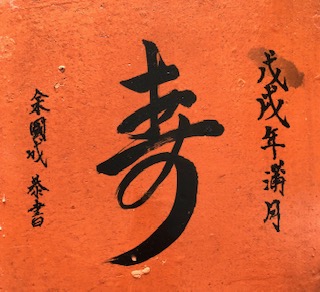 戊戌年满月
寿
余國成 恭書